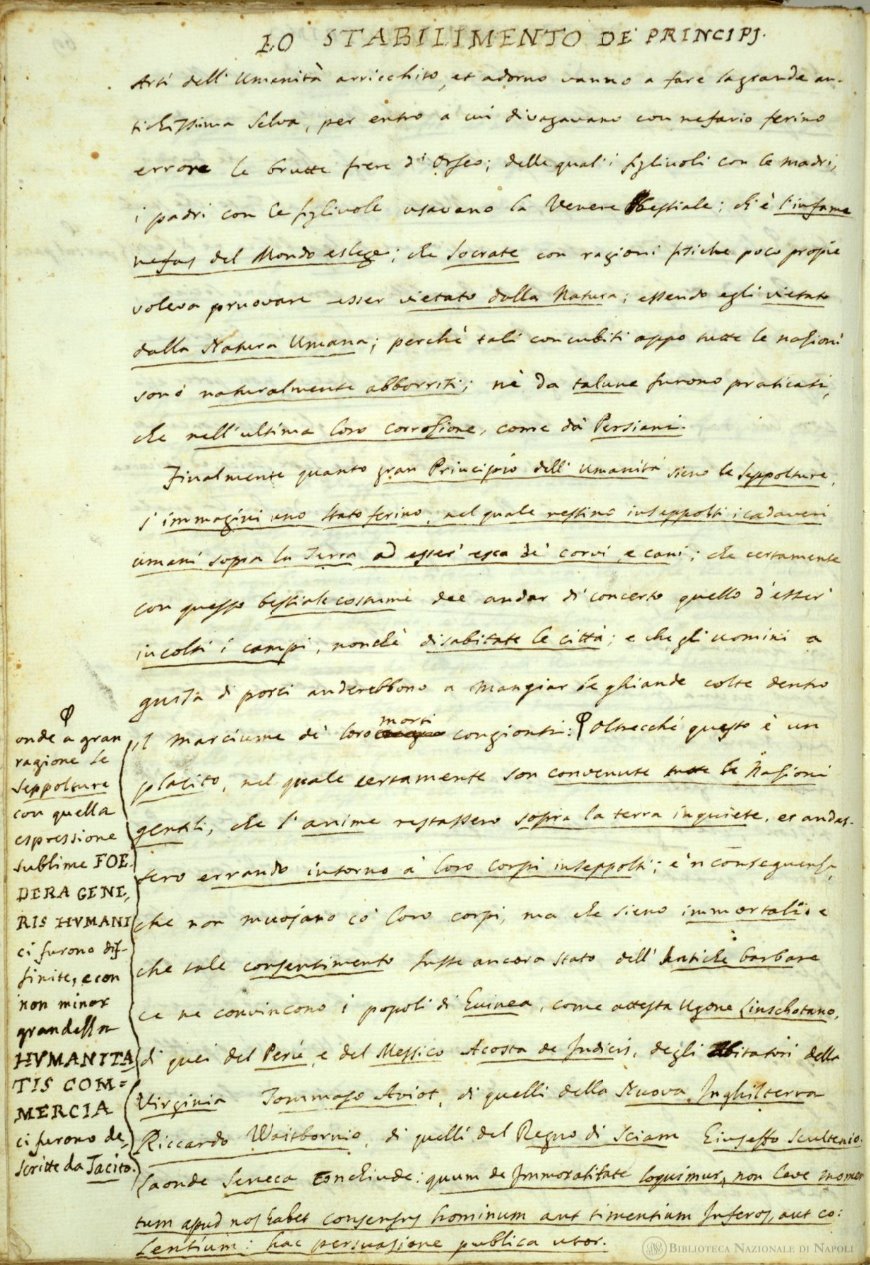 LO STABILIMENTO DE' PRINCIPJ.
Arti dell' Umanità arricchito, et adorno vanno a fare la grande an-
tichissima Selva, per entro a cui divagavano con nefario ferino
errore le brutte fiere d' Orfeo; delle quali i figlivoli con le madri,
i padri con le figlivole usavano la Venere bestiale; ch' è l'infame
nefas del Mondo eslege; che Socrate con ragioni fisiche poco propie
voleva pruovare esser vietato dalla Natura; essendo egli vietato
dalla Natura Umana; perchè tali concubiti appo tutte le nazioni
sono naturalmente abborriti; nè da talune furono praticati,
che nell'ultima loro corrozione, come da' Persiani.
Finalmente quanto gran Principio dell' Umanità sieno le seppolture,
s' immagini uno stato ferino, nel quale restino inseppolti i cadaveri
umani sopra la Terra ad esser' esca de' corvi, e cani; che certamente
con questo bestiale costume dee andar di concerto quello d'esser'
incolti i campi, nonchè disabitate le città; e che gli uomini a
guisa di porci anderebbono a mangiar le ghiande colte dentro
il marciume de' loro morti congionti: Oltrecchè questo è un
placito, nel quale certamente son convenute tutte le Nazioni
gentili, che l' anime restassero sopra la terra inquiete, et andas-
sero errando intorno a' loro corpi inseppolti; e 'n conseguenza,
che non muojano co' loro corpi, ma che sieno immortali: e
che tale consentimento fusse ancora stato dell' Antiche barbare
ce ne convincono i popoli di Guinea, come attesta Ugone Linschotano,
di quei del Perù, e del Messico Acosta de Indicis, degli abitatori della
Virginia Tommaso Aviot, di quelli della Nuova Inghilterra
Riccardo Waitbornio, di quelli del Regno di Sciam Giuseffo Scultenio.
Laonde Seneca conchiude: quum de Immortalitate loquimur, non leve momen-
tum apud nos habet consensus hominum aut timentium Inferos, aut co-
lentium: hac persuasione publica utor.
onde a gran
ragione le
Seppolture
con quella
espressione
sublime FOE-
DERA GENE-
RIS HVMANI
ci furono dif-
finite, e con
non minor
grandezza
HVMANITA
TIS COM-
MERCIA
ci furono de-
scritte da Tacito.
BIBLIOTECA NAZIONALE DI NAPOLI